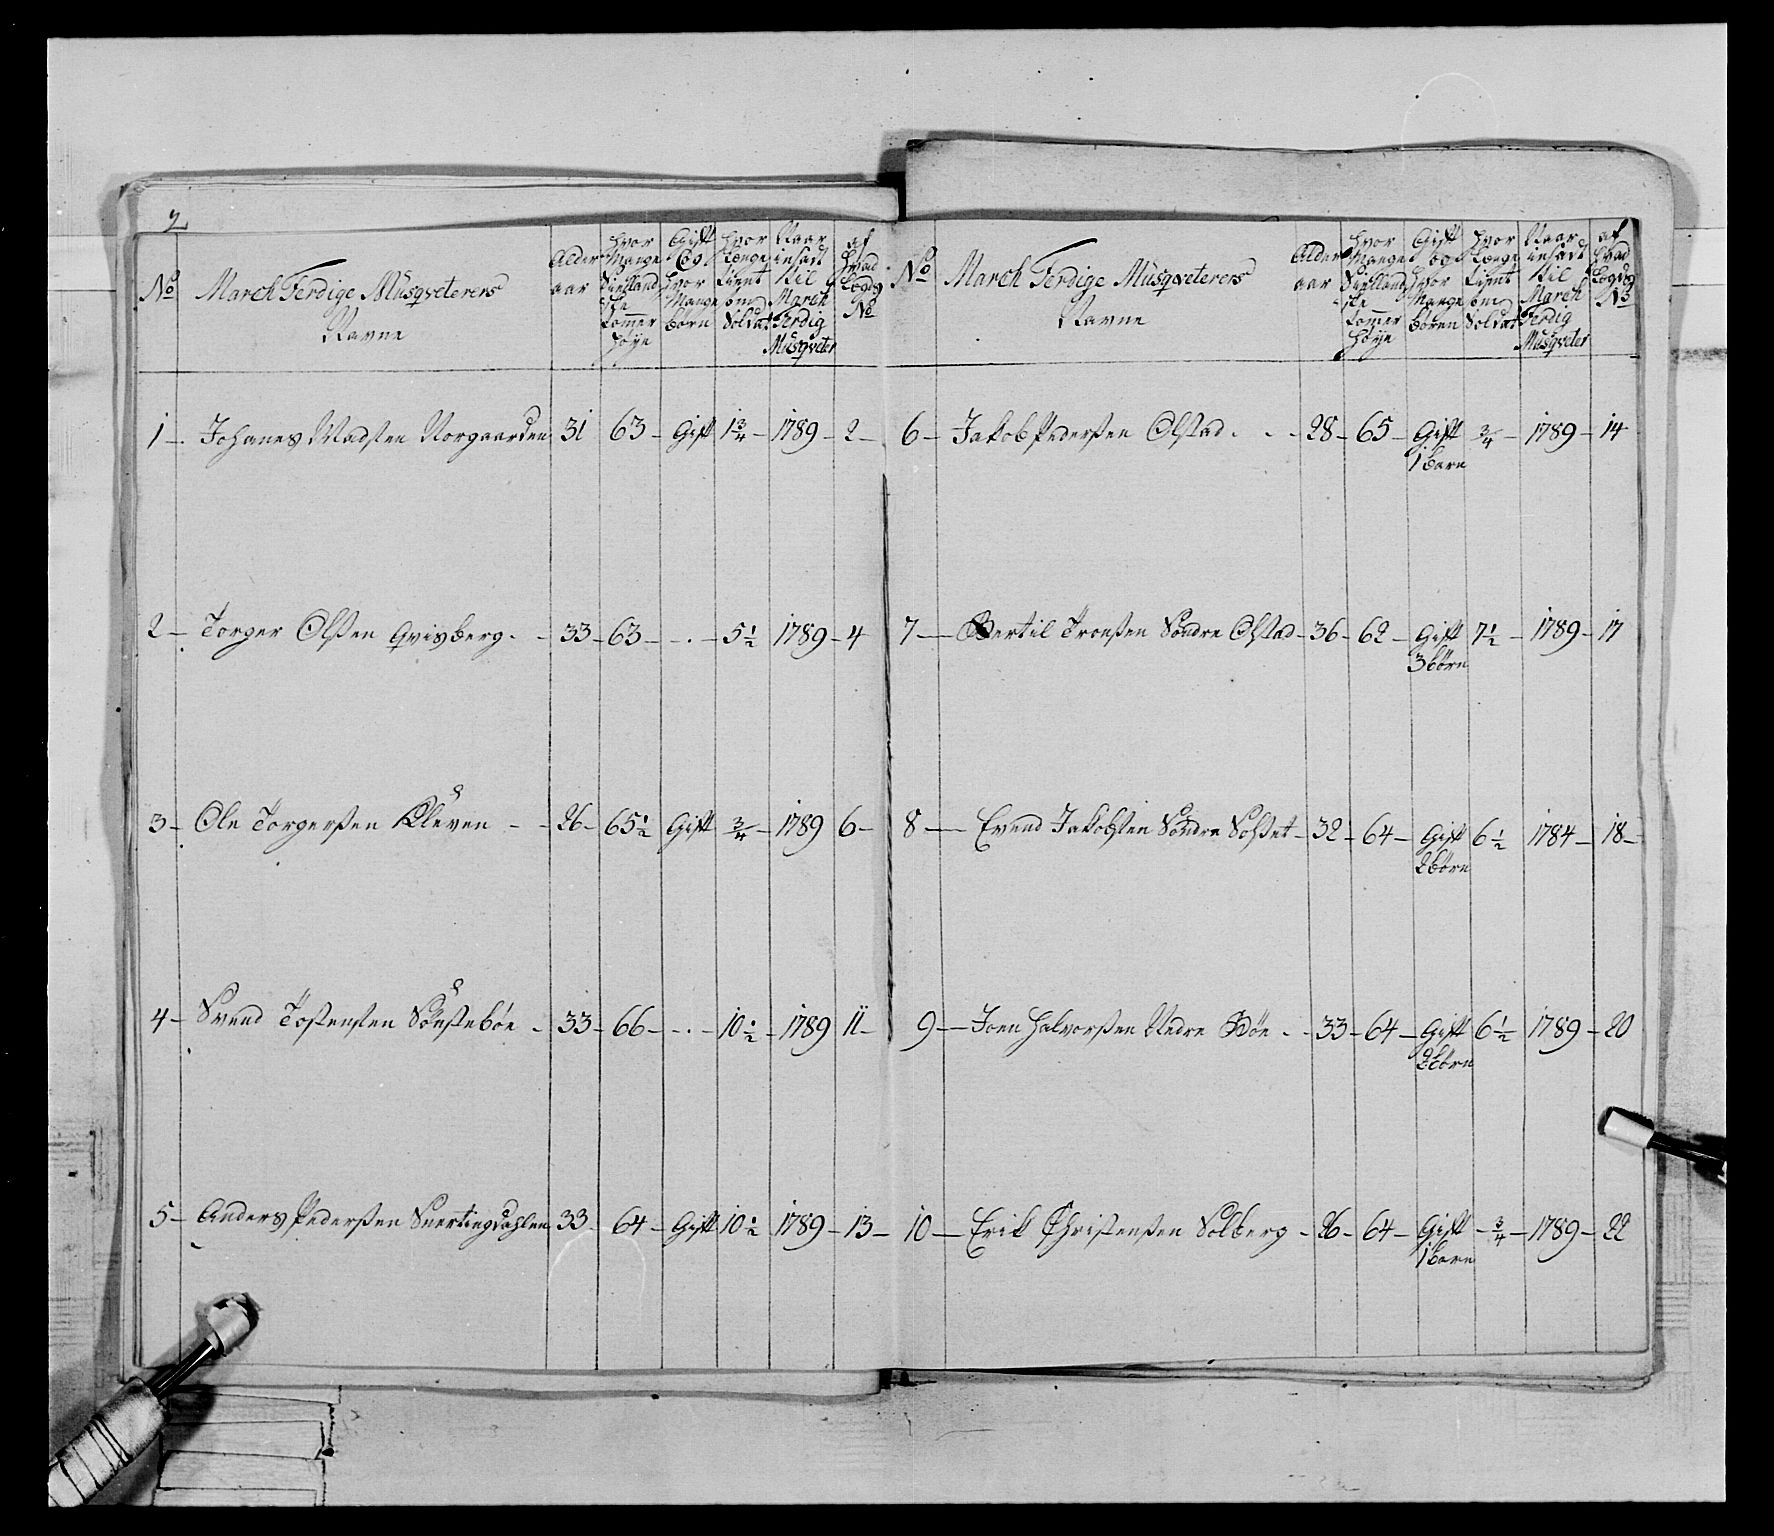 2
No
March Ferdige Musqveterers
Navne
Alder
aar
hvor
Mange
Sielland
ske
tommer
høye
Gift
Og
hvor
Mange
børn
hvor
længe
tient
som
Soldat
Naar
indsadt
til
March
Ferdig
Musqveter
af
hvad
Lægds
No
1 - Johanes Madsen Norgaarden 31 63 - Gift 1 3/4 - 1789 - 2 -
2 - Torger Olsen Qvisberg - 33 - 63 - . - 5 1/2 1789 - 4
3 - Ole Torgersen Kleven - - 26 - 65 1/2 Gift 3/4 - 1789 6 -
4 - Svend Tostensen Sønstebøe - 33 - 66 - . - 10 1/2 - 1789 11 -
5 - Anders Pedersen Snertingdahlen 33 - 64 - Gift 10 1/2 1789 - 13 -
No
March Ferdige Musqveterers
Navne
Alder
aar
hvor
Mange
Sielland
ske
tommer
høye
Gift
og
hvor
Mange
børen
hvor
længe
tient
som
Soldat
Naar
indsadt
til
March
Ferdig
Musqveter
af
hvad
Lægds
No
6 - Jakob Pedersen Olstad . - - 28 - 65 - Gift 3/4 - 1789 - 14
1 barn
7 - Bertil Tronsen Søndre Olstad - 36 - 62 - Gift 7 1/2 - 1789 - 17
3 børn
8 - Evend Jakobsen Søndre Solset - 32 - 64 - Gift 6 1/2 1784 - 18 -
2 børn
9 - Joen Halvorsen Nedre Bøe - - 33 - 64 - Gift 6 1/2 1789 - 20
2 børn
10 - Erik Christensen Solberg - 26 - 64 - Gift - 3/4 - 1789 - 22
1 barn